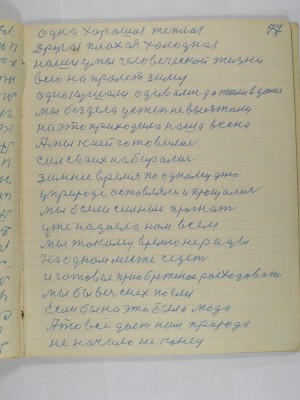 77
одна хорошая теплая
другая плохая холодная
нашиуты человеческой жизни
всю на пролет зиму
однокушали одевалидатоливдоме
мы бездела устепневыезжали
на это приходила наша весна
Амы кней готовились
сил своих набирались
зимнее время по одному
уприроде оставляли и прощались
мы были сильные
уже надоела нам всем
мы такому время не рады
На одном месте седет
и готовые приобретное расходоват
мы бы вес снех поели
Если бы на это была мода
Ато всё дает нам природа
не начило не конец